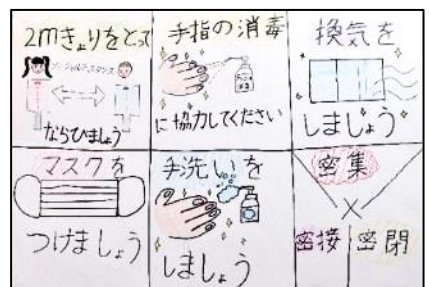 2mきょりをとって
ソーシャルディスタンス
ならびましょう
手指の消毒
に協力してください
換気を
しましょう
マスクを
つけましょう
手洗いを
しましょう
密集
密接
密閉